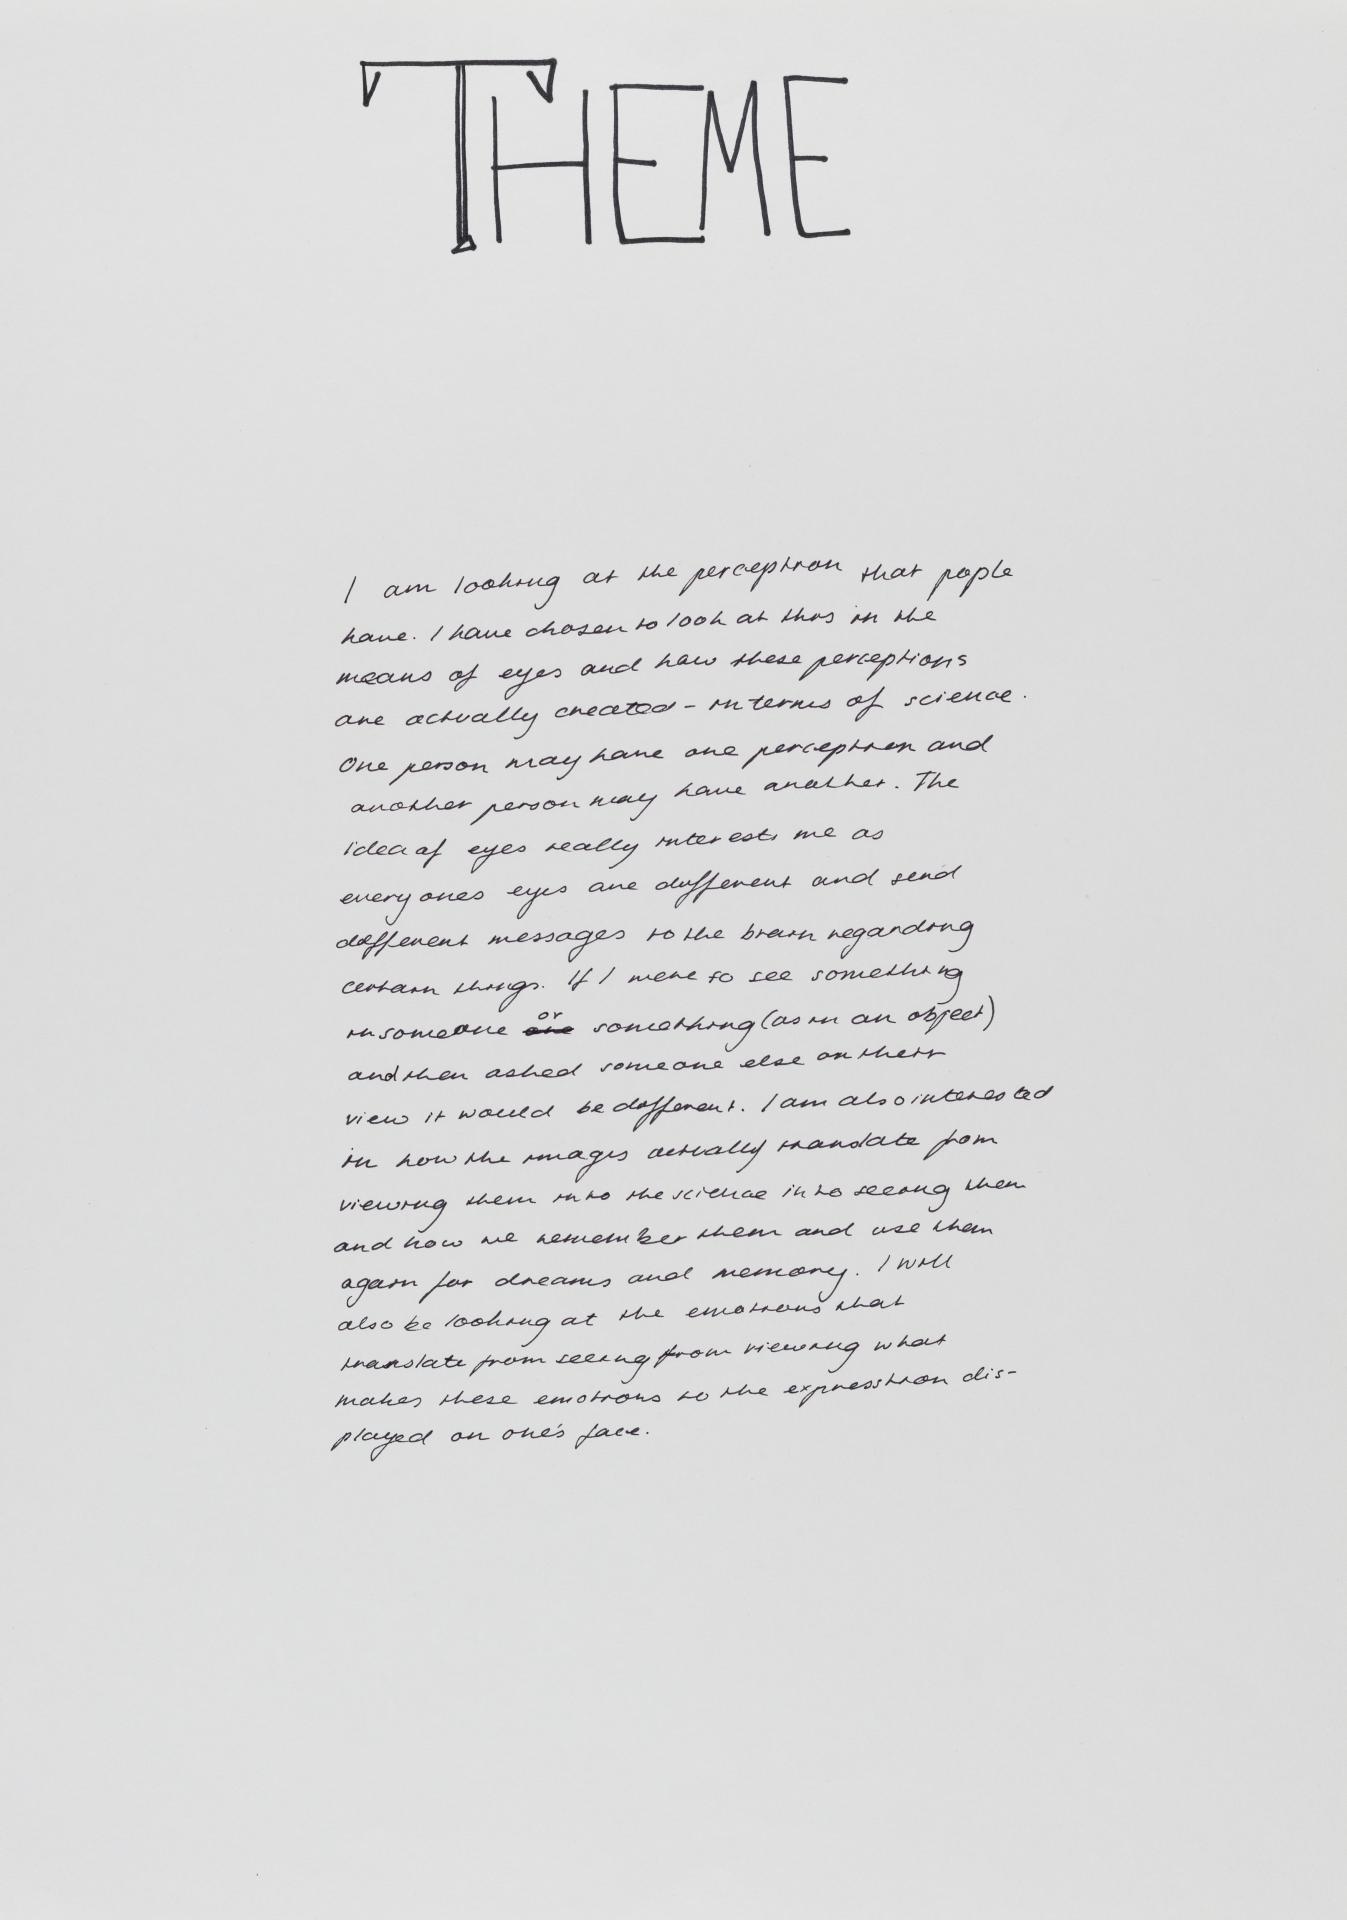 THEME
I am looking at the perception that pople
have. I have chosen to look at this in the
means of eyes and how these perceptions
are actually created - in terms of science.
One person may have one perception and
another person may have another. The
idea of eyes really interests me as
everyones eyes are different and send
different messages to the brain regarding
certain things. If I were to see something
in someone or one something (as in an object)
and then asked someone else on their
view it would be different. I am also interested
in how the images actually translate from
viewing them into the science into seeing them
and how we remember them and use them
again for dreams and memory. I will
also be looking at the emotions that
translate from seeing from viewing what
makes these emotions to the expression dis-
played on one's face.